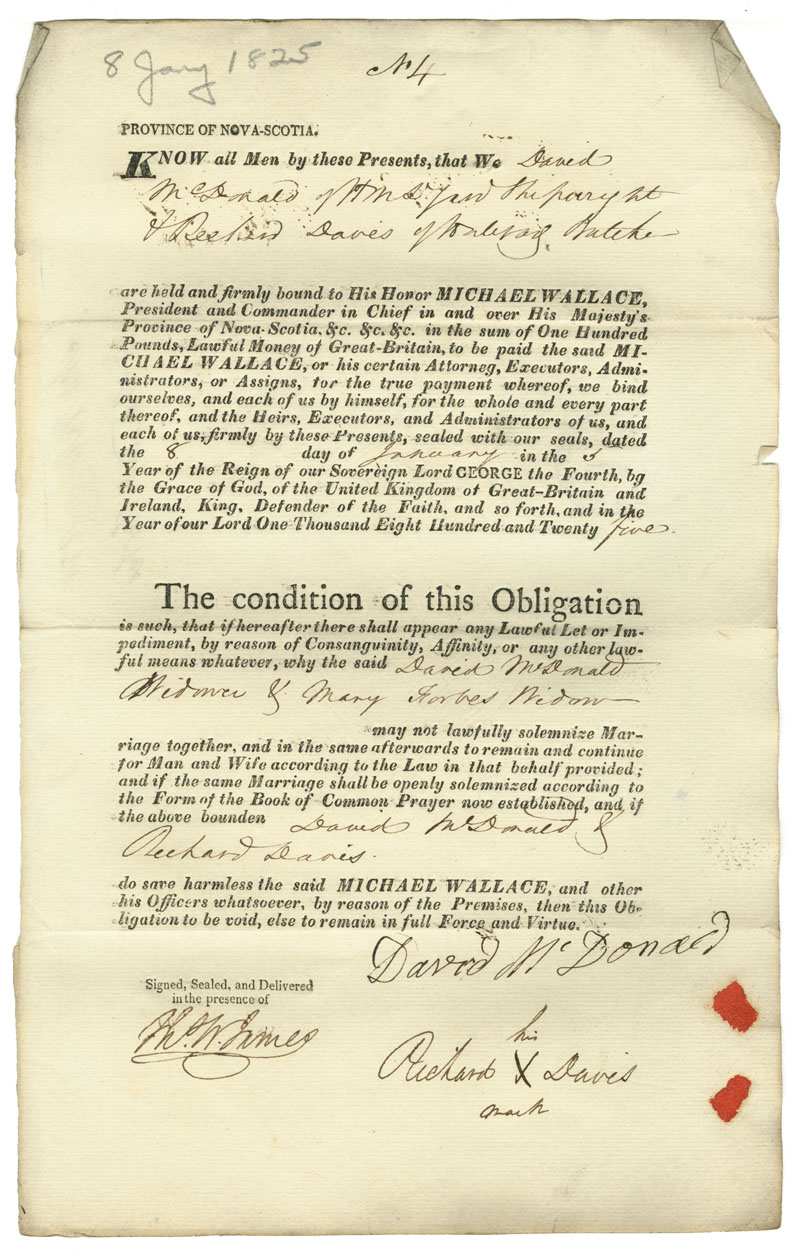 8 Jany 1825
No 4
PROVINCE OF NOVA-SCOTIA.
KNOW all Men by these Presents, that We David
McDonald of H M Yard Shipwright
& Richard Davis of Halifax
are held and firmly bound to His Honor MICHAEL WALLACE,
President and Commander in Chief in and over His Majesty's
Province of Nova-Scotia, &c. &c. &c. in the sum of One Hundred
Pounds, Lawful Money of Great-Britain, to be paid the said MI-
CHAEL WALLACE, or his certain Attorneg, Executors, Admi-
nistrators, or Assigns, for the true payment whereof, we bind
ourselves, and each of us by himself, for the whole and every part
thereof, and the Heirs, Executors, and Administrators of us, and
each of us, firmly by these Presents, sealed with our seals, dated
the 8 day of January in the 5
Year of the Reign of our Sovereign Lord GEORGE the Fourth, bg
the Grace of God, of the United Kingdom of Great-Britain and
Ireland, King, Defender of the Faith, and so forth, and in the
Year of our Lord One Thousand Eight Hundred and Twenty five.
The condition of this Obligation
is such, that if hereafter there shall appear any Lawful Let or Im-
pediment, by reason of Consanguinity, Affinity, or any other law-
ful means whatever, why the said David McDonald
Widower & Mary Forbes Widow
may not lawfully solemnize Mar-
riage together, and in the same afterwards to remain and continue
for Man and Wife according to the Law in that behalf provided;
and if the same Marriage shall be openly solemnized according to
the Form of the Book of Common Prayer now established, and if
the above bounden David McDonald &
Richard Davis.
do save harmless the said MICHAEL WALLACE, and other
his Officers whatsoever, by reason of the Premises, then this Ob-
ligation to be void, else to remain in full Force and Virtue.
David McDonald
Signed, Sealed, and Delivered
in the presence of
Thos. W. James
his
Richard X Davis
mark